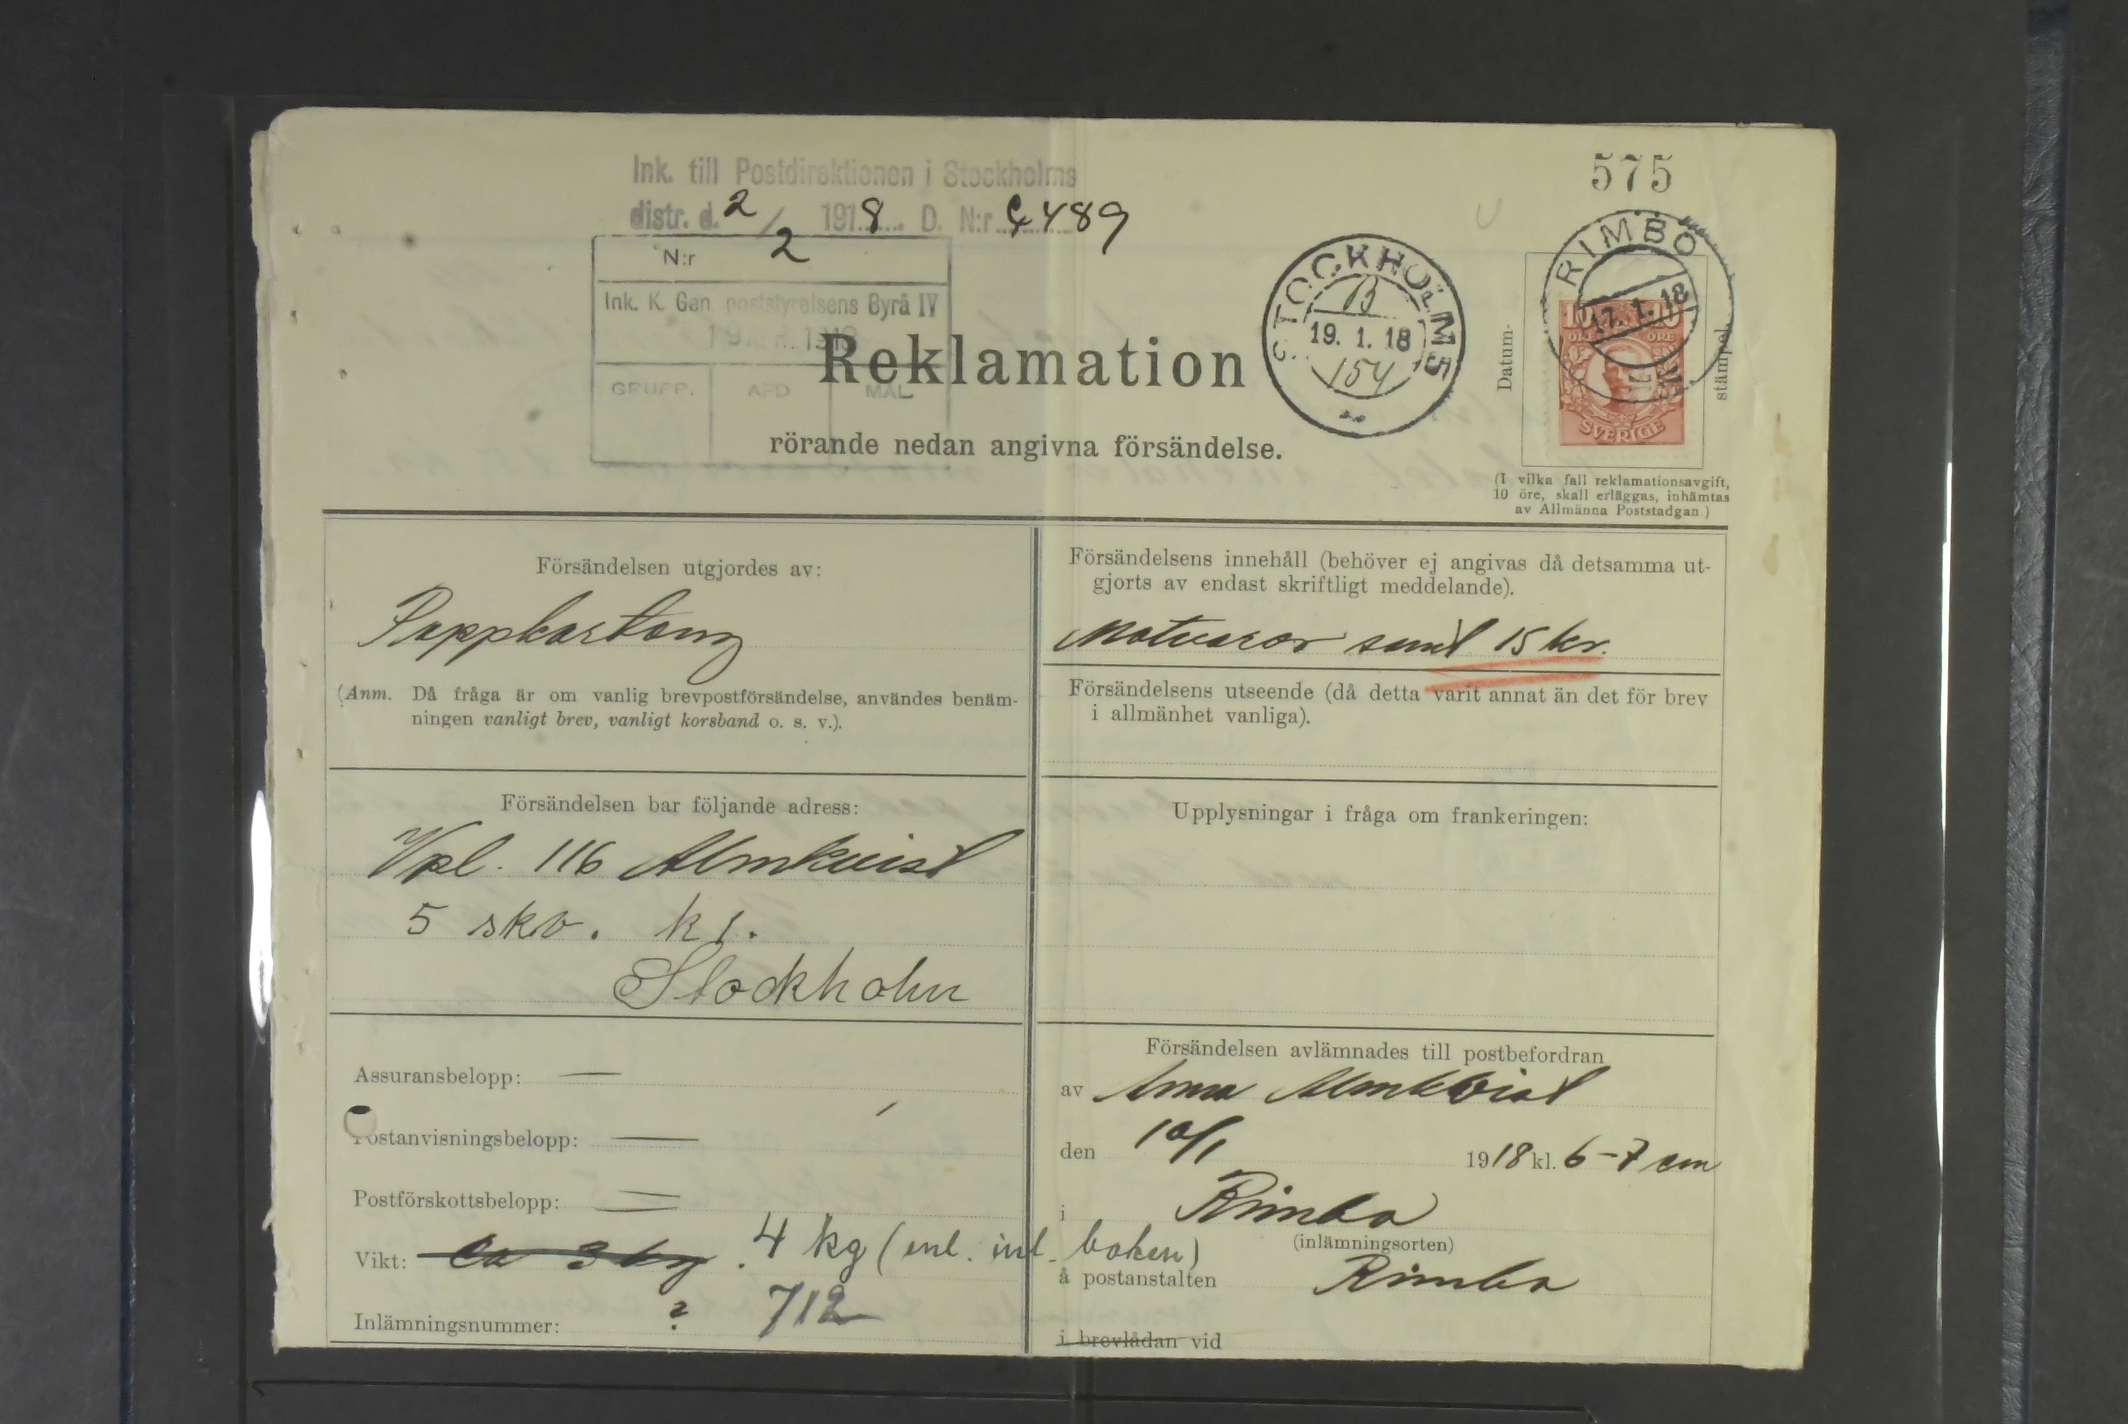 575
Ink. till Postdirektionen i Stockholms
distr. d. 2/2 1918. D. N:r 4489
N:r
Ink. K. Gen. poststyrelsens Byrå IV
GRUPP. AFD MÅL
STOCKHOLM 5
B
19. 1. 18
154
RIMBO
17. 1. 18
10 10
ÖRE ÖRE
SVERIGE
Datum-
stämpel.
Reklamation
rörande nedan angivna försändelse.
(I vilka fall reklamationsavgift,
10 öre, skall erläggas, inhämtas
av Allmänna Poststadgan.)
Försändelsen utgjordes av:
Pappkartong
(Anm. Då fråga är om vanlig brevpostförsändelse, användes benäm-
ningen vanligt brev, vanligt korsband o. s. v.).
Försändelsens innehåll (behöver ej angivas då detsamma ut-
gjorts av endast skriftligt meddelande).
Matvaror samt 15 kr.
Försändelsens utseende (då detta varit annat än det för brev
i allmänhet vanliga).
Försändelsen bar följande adress:
Vpl. 116 Almkvist
5 skv. K 1.
Stockholm
Upplysningar i fråga om frankeringen:
Assuransbelopp: —
Postanvisningsbelopp: —
Postförskottsbelopp: =
Vikt: ca 3 kg. 4 kg (enl. inl. boken)
Inlämningsnummer: ? 712
Försändelsen avlämnades till postbefordran
av Anna Almkvist
den 10/1 1918 kl. 6-7 em
i Rimbo
(inlämningsorten)
å postanstalten Rimbo
i brevlådan vid